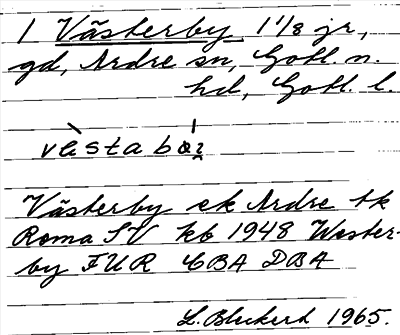 1 Västerby 1 1/8 jr,
gd, Ardre sn, Gotl. n.
hd, Gotl. l.
Västerby ek Ardre tk
Roma SV kb 1948 Wester-
by FUR CBA DBA
1965.